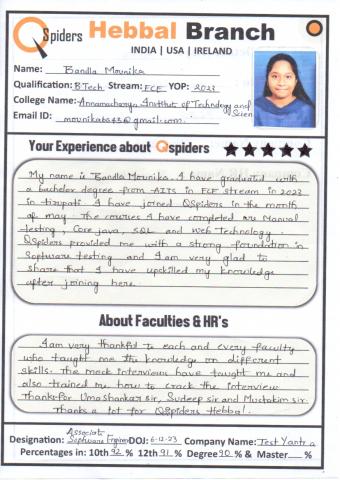 QSpiders Hebbal Branch
INDIA | USA | IRELAND
Name: Bandla Mounika
Qualification: B.Tech Stream: ECE YOP: 2023
College Name: Annamacharya Institute of Technology and Scien
Email ID: mounikab643@gmail.com
Your Experience about Qspiders
My name is Bandla Mounika. I have graduated with
a bachelor degree from AITS in ECE stream in 2023
in tirupati. I have joined QSpiders in the month
of may. The courses I have completed are Manual
testing, Core java, SQL and Web Technology.
QSpiders provided me with a strong foundation in
Software testing and I am very glad to
share that I have upskilled my knowledge
after joining here.
About Faculties & HR's
I am very thankful to each and every faculty
who taught me the knowledge on different
skills. The mock interviews have taught me and
also trained me how to crack the interview
Thanks for Umashankar sir, Sudeep sir and Mustakim sir.
Thanks a lot for QSpiders Hebbal.
Designation: Associate Software Engineer DOJ: 6-12-23 Company Name: Test Yantra
Percentages in: 10th 92 % 12th 91 % Degree 90 % & Master %